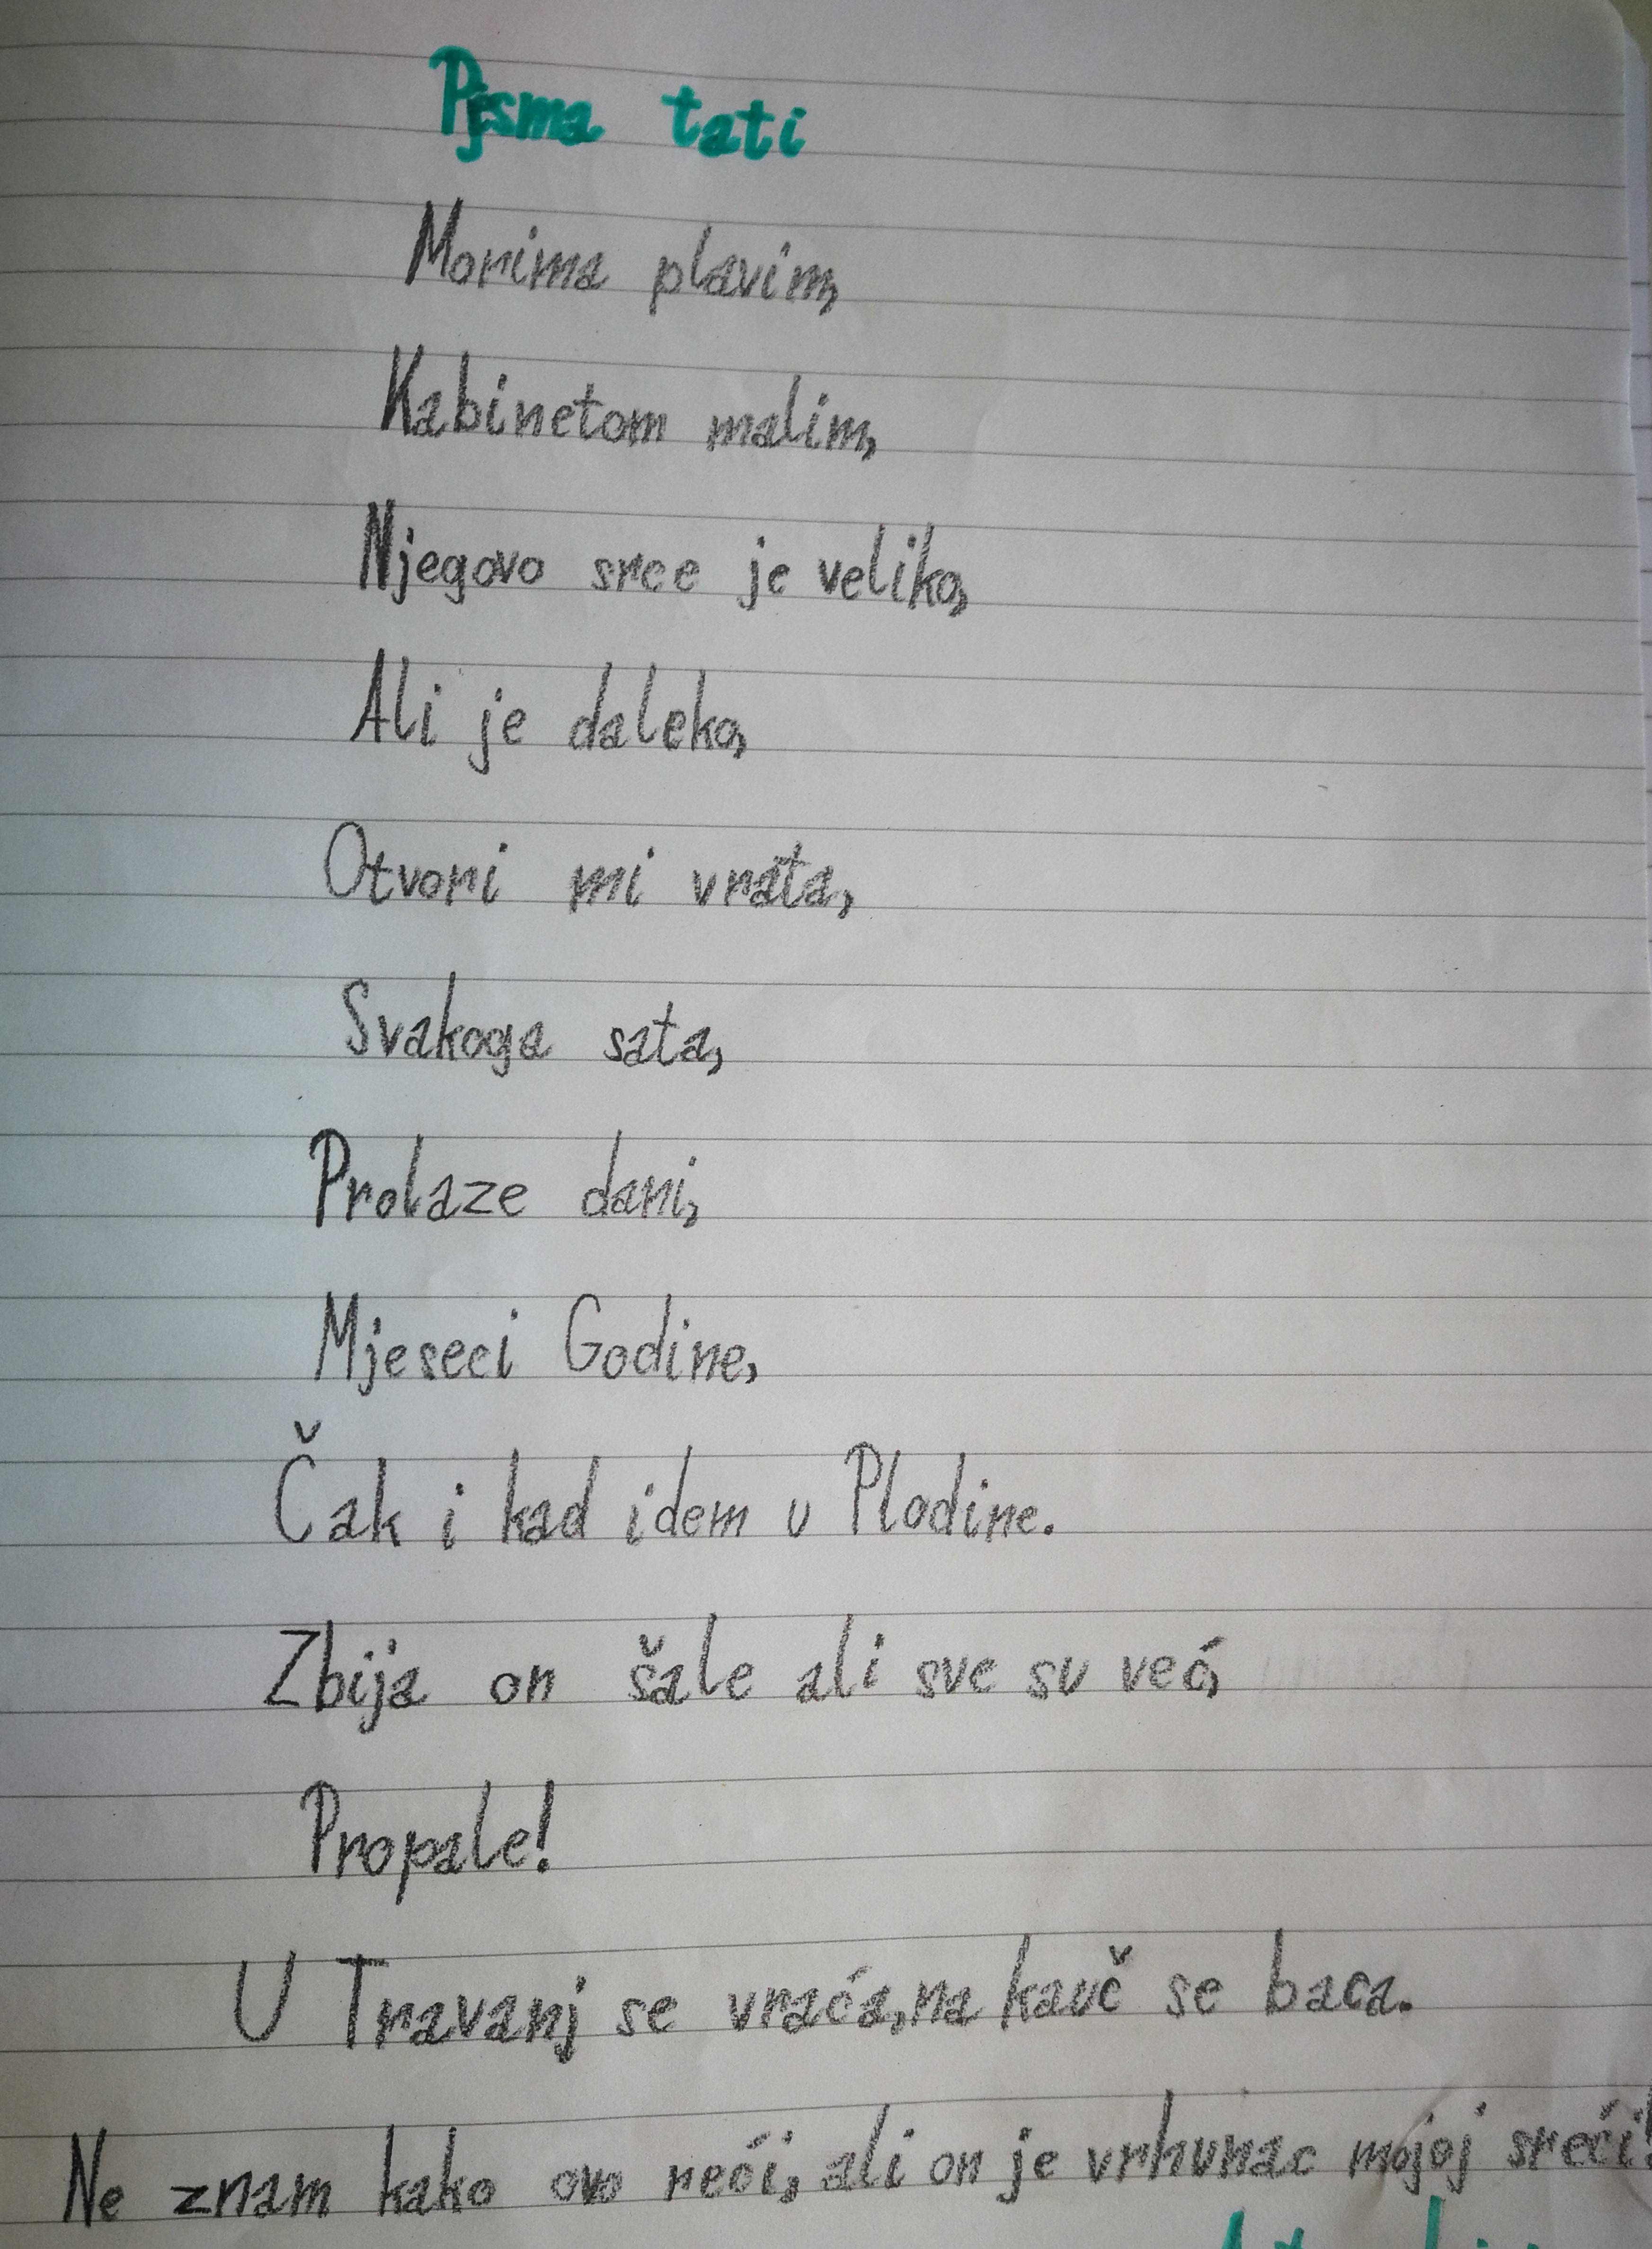 Pjesma tati
Morima plavim,
Kabinetom malim,
Njegovo srce je veliko,
Ali je daleko,
Otvori mi vrata,
Svakoga sata,
Prolaze dani,
Mjeseci Godine,
Čak i kad idem u Plodine.
Zbija on šale ali sve su već,
Propale!
U Travanj se vraća, na kauč se baca.
Ne znam kako ovo reći, ali on je vrhunac mojoj sreći!